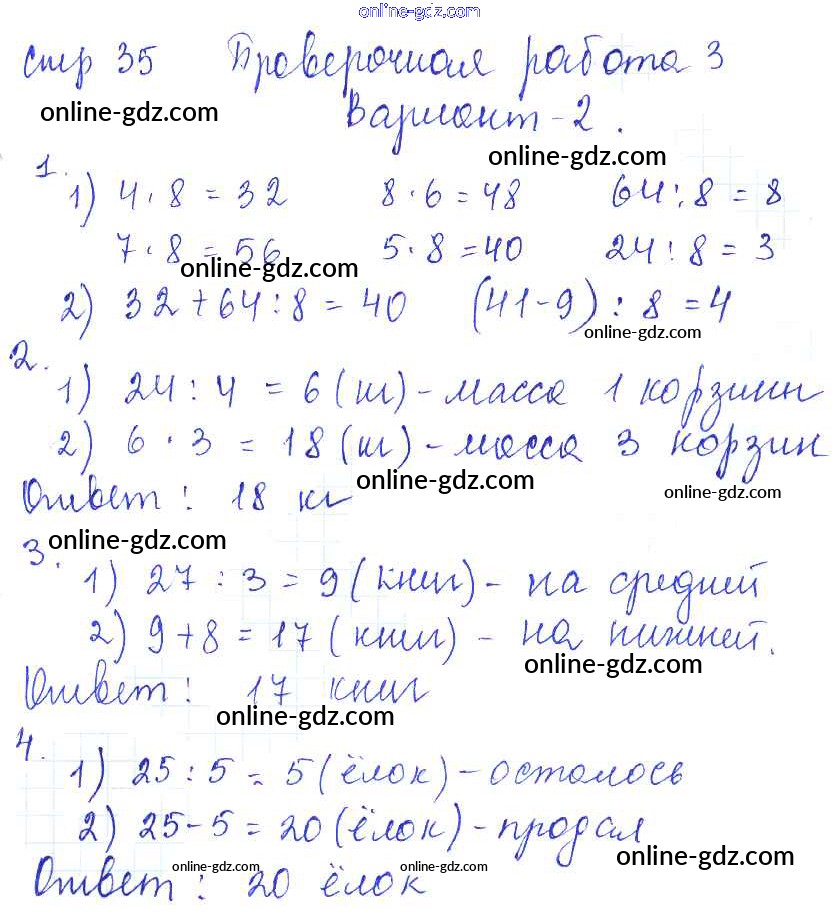 online-gdz.com
стр 35 Проверочная работа 3
online-gdz.com
Вариант-2.
online-gdz.com
1.
1) 4·8=32 8·6=48 64:8=8
7·8=56 5·8=40 24:8=3
online-gdz.com
2) 32+64:8=40 (41-9):8=4
online-gdz.com
2.
1) 24:4=6(кг)-масса 1 корзины
2) 6·3=18(кг)-масса 3 корзин
online-gdz.com
online-gdz.com
Ответ: 18 кг
3. online-gdz.com
1) 27:3=9(книг)-на средней
2) 9+8=17(книг)-на нижней.
online-gdz.com
Ответ: 17 книг
online-gdz.com
4.
1) 25:5=5(ёлок)-осталось
2) 25-5=20(ёлок)-продал
online-gdz.com
online-gdz.com online-gdz.com
Ответ: 20 ёлок